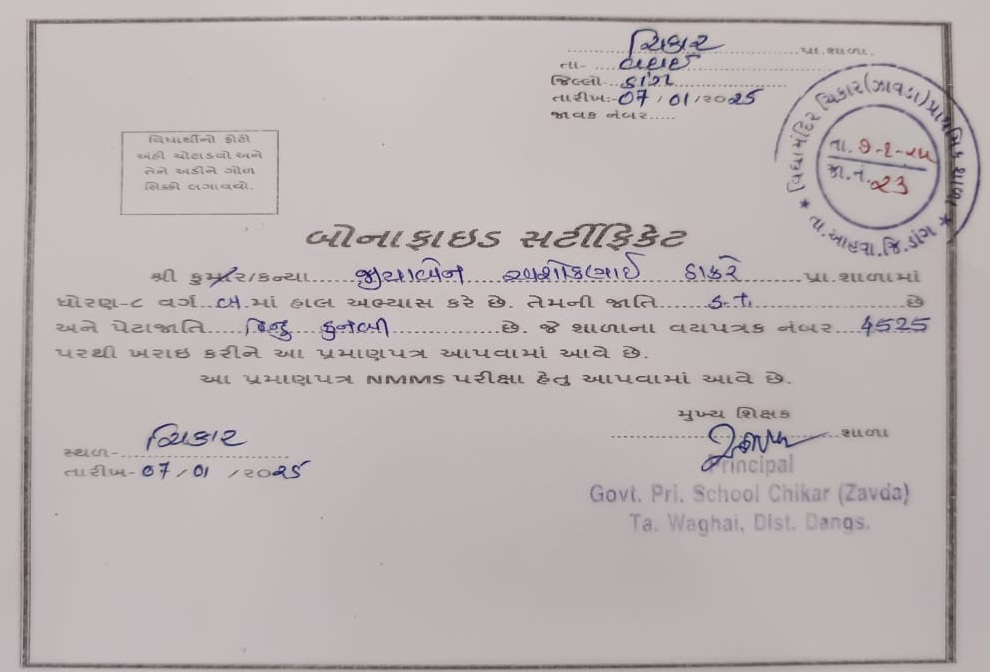 ચિકાર પ્રા.શાળા.
તા- વઘઈ
જિલ્લો- ડાંગ
તારીખ:- 07/01/૨૦25
જાવક નંબર.....
વિદ્યામંદિર ચિકાર(ઝાવડા)પ્રાથમિક શાળા
તા.આહવા.જિ.ડાંગ
તા. 7-1-25
જા.નં. 23
વિદ્યાર્થીનો ફોટો
અહીં ચોટાડવો અને
તેને અડીને ગોળ
સિક્કો લગાવવો.
બોનાફાઇડ સર્ટીફિકેટ
શ્રી કુમાર/કન્યા જીયાબેન અશોકભાઈ ઠાકરે પ્રા.શાળામાં
ધોરણ-૮ વર્ગ બ માં હાલ અભ્યાસ કરે છે. તેમની જાતિ છે
અને પેટાજાતિ હિન્દુ કુનબી છે. જે શાળાના વયપત્રક નંબર 4525
પરથી ખરાઇ કરીને આ પ્રમાણપત્ર આપવામાં આવે છે.
આ પ્રમાણપત્ર NMMS પરીક્ષા હેતુ આપવામાં આવે છે.
મુખ્ય શિક્ષક
શાળા
સ્થળ- ચિકાર
તારીખ- 07/01/૨૦25
Principal
Govt. Pri. School Chikar (Zavda)
Ta. Waghai, Dist. Dangs.